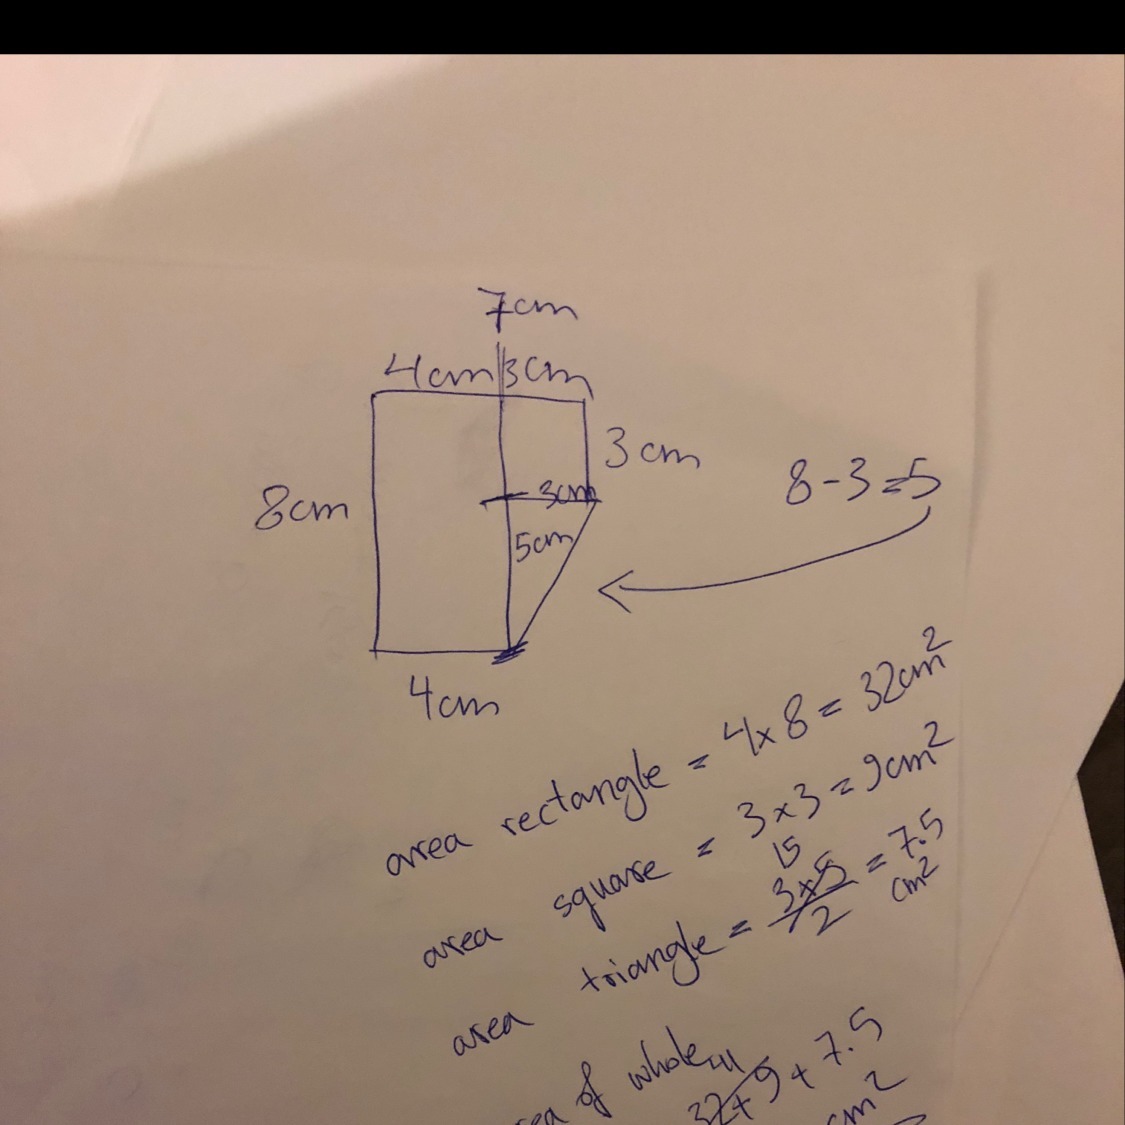 7cm
4cm 3cm
3cm
8cm
3cm
8-3=5
5cm
4cm
area rectangle = 4x8 = 32cm²
area square = 3x3 = 9cm²
15
area triangle = 3x5/2 = 7.5 cm²
of whole
41
32+9+7.5
cm²